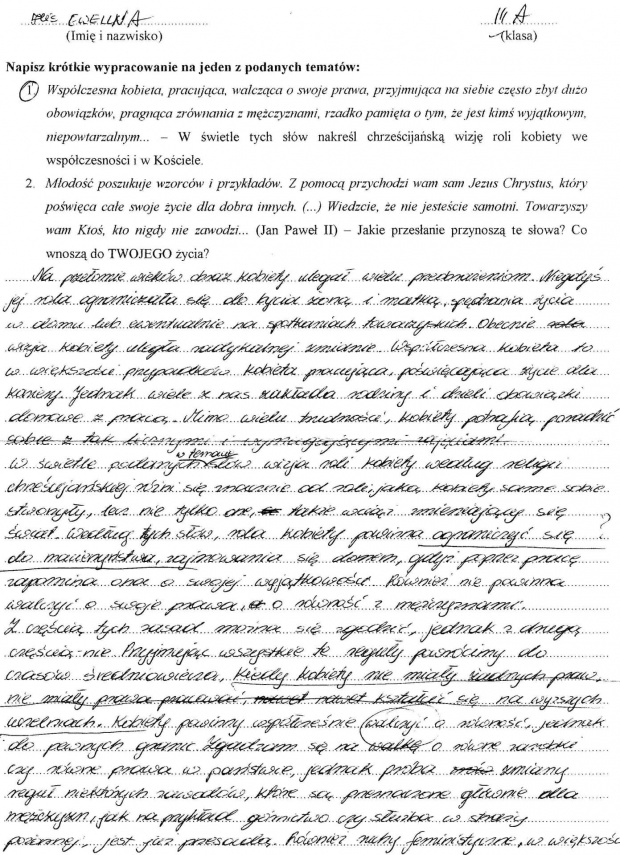 EWELINA III A
(Imię i nazwisko) (klasa)
Napisz krótkie wypracowanie na jeden z podanych tematów:
1. Współczesna kobieta, pracująca, walcząca o swoje prawa, przyjmująca na siebie często zbyt dużo
obowiązków, pragnąca zrównania z mężczyznami, rzadko pamięta o tym, że jest kimś wyjątkowym,
niepowtarzalnym... – W świetle tych słów nakreśl chrześcijańską wizję roli kobiety we
współczesności i w Kościele.
2. Młodość poszukuje wzorców i przykładów. Z pomocą przychodzi wam sam Jezus Chrystus, który
poświęca całe swoje życie dla dobra innych. (...) Wiedzcie, że nie jesteście samotni. Towarzyszy
wam Ktoś, kto nigdy nie zawodzi... (Jan Paweł II) – Jakie przesłanie przynoszą te słowa? Co
wnoszą do TWOJEGO życia?
Na przełomie wieków obraz kobiety uległ wielu przeobrażeniom. Niegdyś
jej rola ograniczała się do bycia żoną i matką, spędzania życia
w domu lub ewentualnie na spotkaniach towarzyskich. Obecnie rola
wizja kobiety uległa radykalnej zmianie. Współczesna kobieta to
w większości przypadków kobieta pracująca, poświęcająca życie dla
kariery. Jednak wiele z nas zakłada rodziny i dzieli obowiązki
domowe z pracą. Mimo wielu trudności, kobiety potrafią poradzić
sobie z tak licznymi i wymagającymi zajęciami.
W świetle podanych w temacie słów wizja roli kobiety według religii
chrześcijańskiej różni się znacznie od roli, jaką kobiety same sobie
stworzyły, lecz nie tylko one, także wciąż zmieniający się
świat. Według tych słów, rola kobiety powinna ograniczyć się ?
do macierzyństwa, zajmowania się domem, gdyż poprzez pracę
zapomina ona o swojej wyjątkowości. Również nie powinna
walczyć o swoje prawa, o równość z mężczyznami.
Z częścią tych zasad można się zgodzić, jednak z drugą
częścią - nie. Przyjmując wszystkie te reguły powrócimy do
czasów średniowiecza, kiedy kobiety nie miały żadnych praw,
nie miały prawa pracować, nawet kształcić się na wyższych
uczelniach. Kobiety powinny współcześnie walczyć o równość, jednak
do pewnych granic. Zgadzam się na walkę o równe zarobki
czy równe prawa w państwie, jednak próba zmiany
reguł niektórych zawodów, które są przeznaczone głównie dla
mężczyzn, jak na przykład górnictwo czy służba w straży
pożarnej, jest już przesadą. Również ruchy feministyczne, w większości